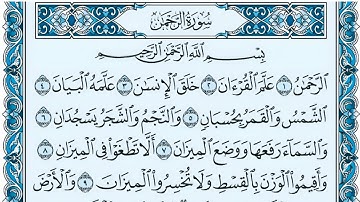 سُورَةُ الرَّحْمَٰن
بِسْمِ اللَّهِ الرَّحْمَٰنِ الرَّحِيمِ
الرَّحْمَٰنُ ١ عَلَّمَ الْقُرْءَانَ ٢ خَلَقَ الْإِنسَٰنَ ٣ عَلَّمَهُ الْبَيَانَ ٤
الشَّمْسُ وَالْقَمَرُ بِحُسْبَانٍ ٥ وَالنَّجْمُ وَالشَّجَرُ يَسْجُدَانِ ٦
وَالسَّمَاءَ رَفَعَهَا وَوَضَعَ الْمِيزَانَ ٧ أَلَّا تَطْغَوْا فِي الْمِيزَانِ ٨
وَأَقِيمُوا الْوَزْنَ بِالْقِسْطِ وَلَا تُخْسِرُوا الْمِيزَانَ ٩ وَالْأَرْضَ